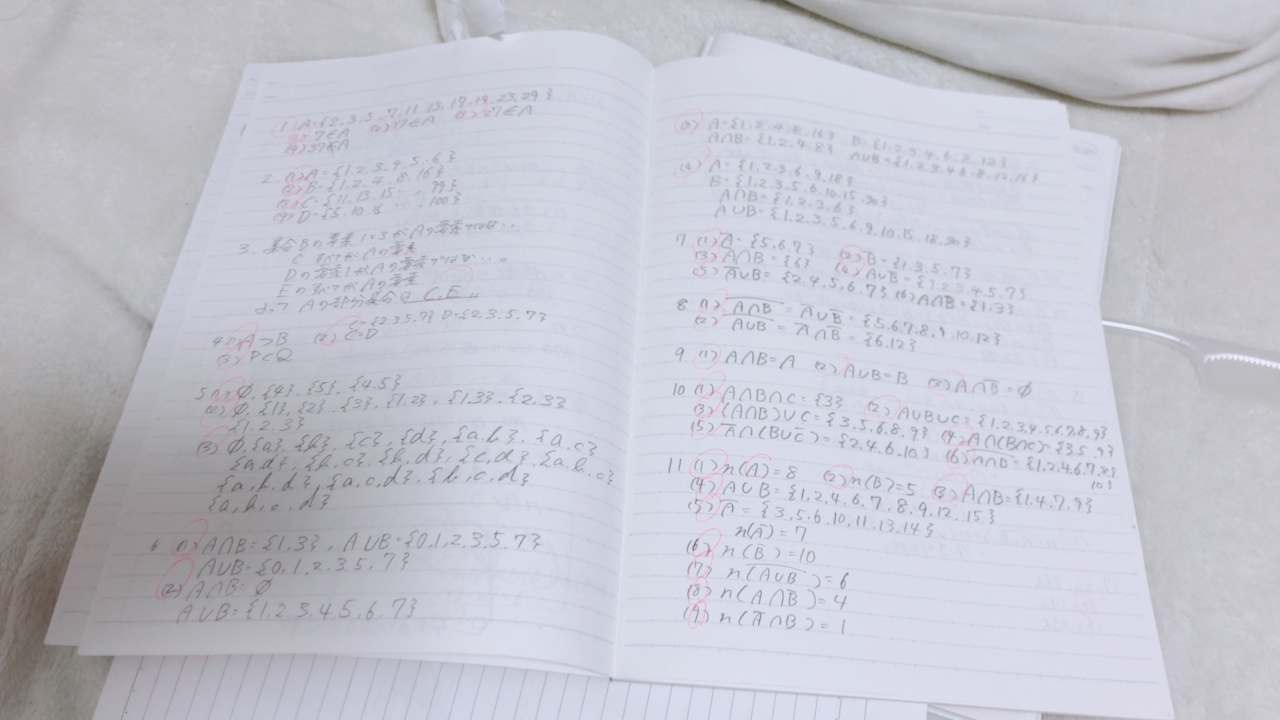 1 A={2,3,5,7,11,13,17,19,23,29}
(1) 7∈A (2) 17∈A (3) 27∉A
(4) 37∉A
2. (1) A={1,2,3,4,5,6}
(2) B={1,2,4,8,16}
(3) C={11,13,15,…,99}
(4) D={5,10,15…,100}
3. 集合Bの要素1と3がAの要素ではない.
C すべてがAの要素
Dの要素1がAの要素ではない。
EのすべてがAの要素
よって Aの部分集合は C,E,,
C={2,3,5,7} D={2,3,5,7}
4 (1) A⊃B (2) C=D
(3) P⊂Q
5 (1) φ,{4},{5},{4,5}
(2) φ,{1},{2},{3},{1,2},{1,3},{2,3}
{1,2,3}
(3) φ,{a},{b},{c},{d},{a,b},{a,c}
{a,d},{b,c},{b,d},{c,d},{a,b,c}
{a,b,d},{a,c,d},{b,c,d}
{a,b,c,d}
6 (1) A∩B={1,3}, A∪B={0,1,2,3,5,7}
A∪B={0,1,2,3,5,7}
(2) A∩B=φ
A∪B={1,2,3,4,5,6,7}
(3) A={1,2,4,8,16} B={1,2,3,4,6,8,12}
A∩B={1,2,4,8} A∪B={1,2,3,4,6,8,12,16}
(4) A={1,2,3,6,9,18}
B={1,2,3,5,6,10,15,30}
A∩B={1,2,3,6}
A∪B={1,2,3,5,6,9,10,15,18,30}
7 (1) A̅={5,6,7} (2) B̅={1,3,5,7}
(3) A̅∩B={6} (4) A∪B̅={1,2,3,4,5,7}
(5) A̅∪B={2,4,5,6,7} (6) A∩B̅={1,3}
8 (1) A̅∩̅B̅=A̅∪B̅={5,6,7,8,9,10,12}
(2) A̅∪̅B̅=A̅∩B̅={6,12}
9 (1) A∩B=A (2) A∪B=B (3) A∩B̅=φ
10 (1) A∩B∩C={3} (2) A∪B∪C={1,2,3,4,5,6,7,8,9}
(3) (A∩B)∪C={3,5,6,8,9} (4) A∩(B∩C)={3,5,9}
(5) A̅∩(B∪C̅)={2,4,6,10} (6) A̅∩̅B̅={1,2,4,6,7,8,
10}
11 (1) n(A)=8 (2) n(B)=5 (3) A∩B={1,4,7,9}
(4) A∪B={1,2,4,6,7,8,9,12,15}
(5) A̅={3,5,6,10,11,13,14}
n(A̅)=7
(6) n(B̅)=10
(7) n(A̅∪̅B̅)=6
(8) n(A∩B̅)=4
(9) n(A̅∩B)=1